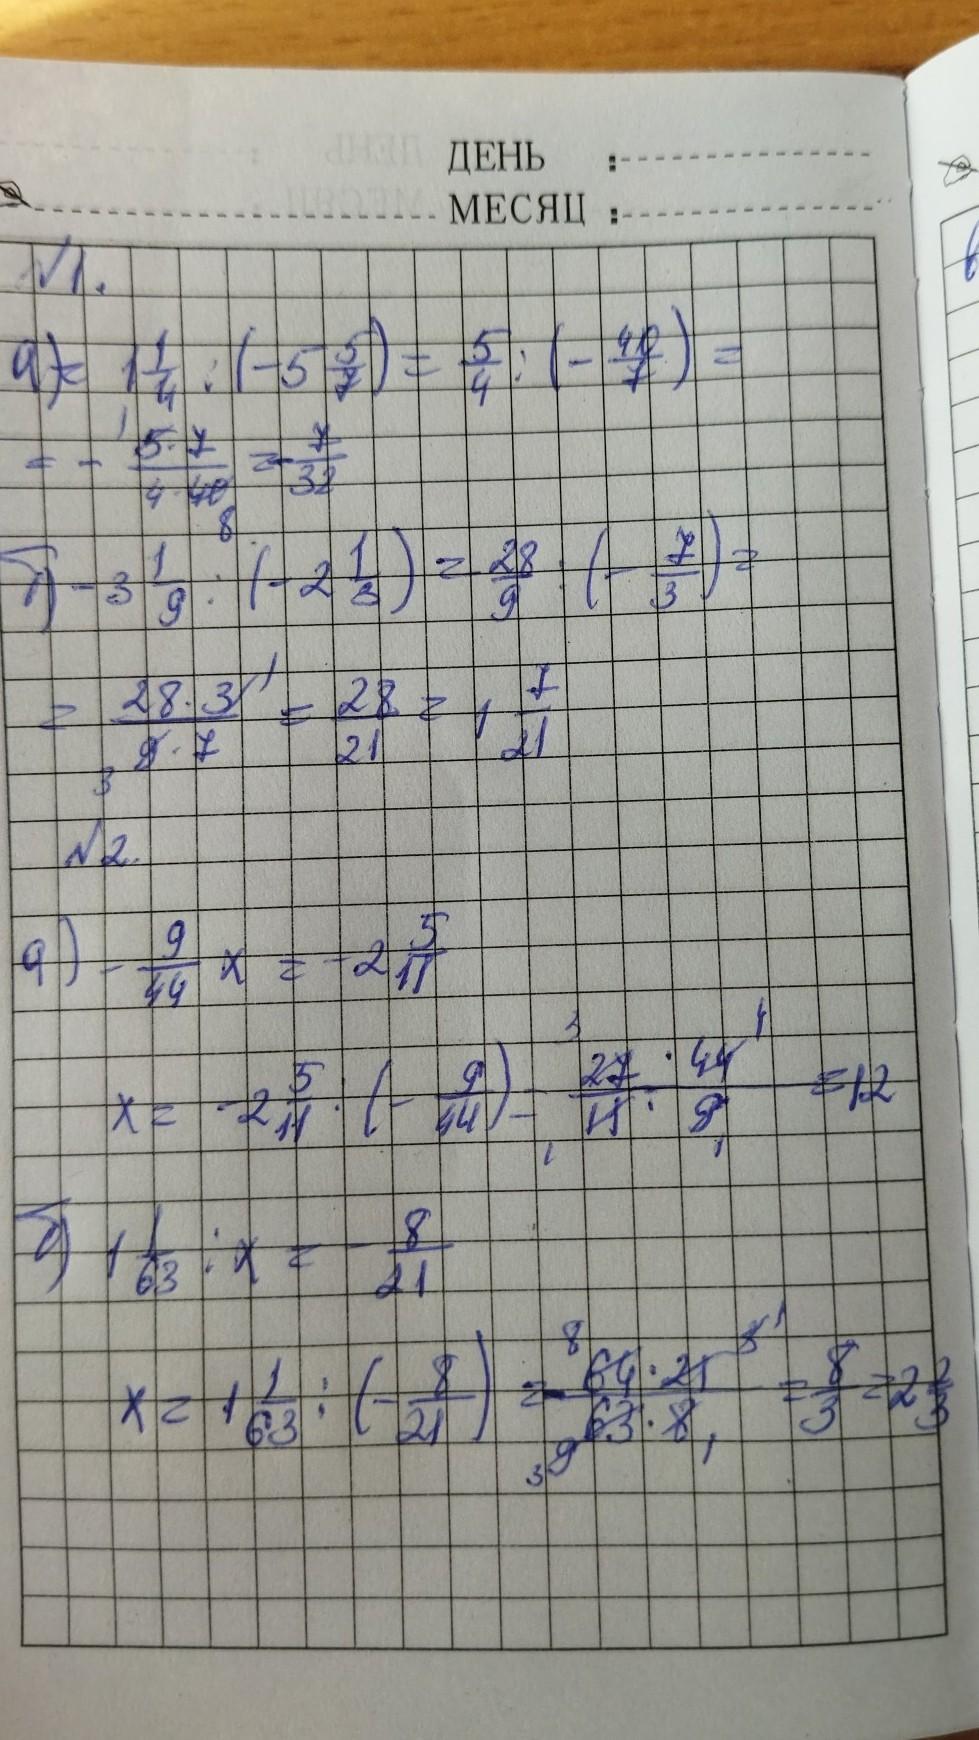 ДЕНЬ :
МЕСЯЦ :
№1.
а) = 1 1/4 : (-5 5/7) = 5/4 : (- 40/7) =
= - 5·7/4·40 = - 7/32
1
8
б) -3 1/9 : (-2 1/3) = - 28/9 : (- 7/3) =
= 28·3/9·7 = 28/21 = 1 7/21
1
3
№2.
а) - 9/44 x = -2 5/11
x = -2 5/11 : (- 9/44) = 27/11 · 44/9 = 12
3 4
1 1
б) 1 1/63 : x = - 8/21
x = 1 1/63 : (- 8/21) = - 64·21/63·8 = 8/3 = 2 2/3
8 3 1
3 9 1